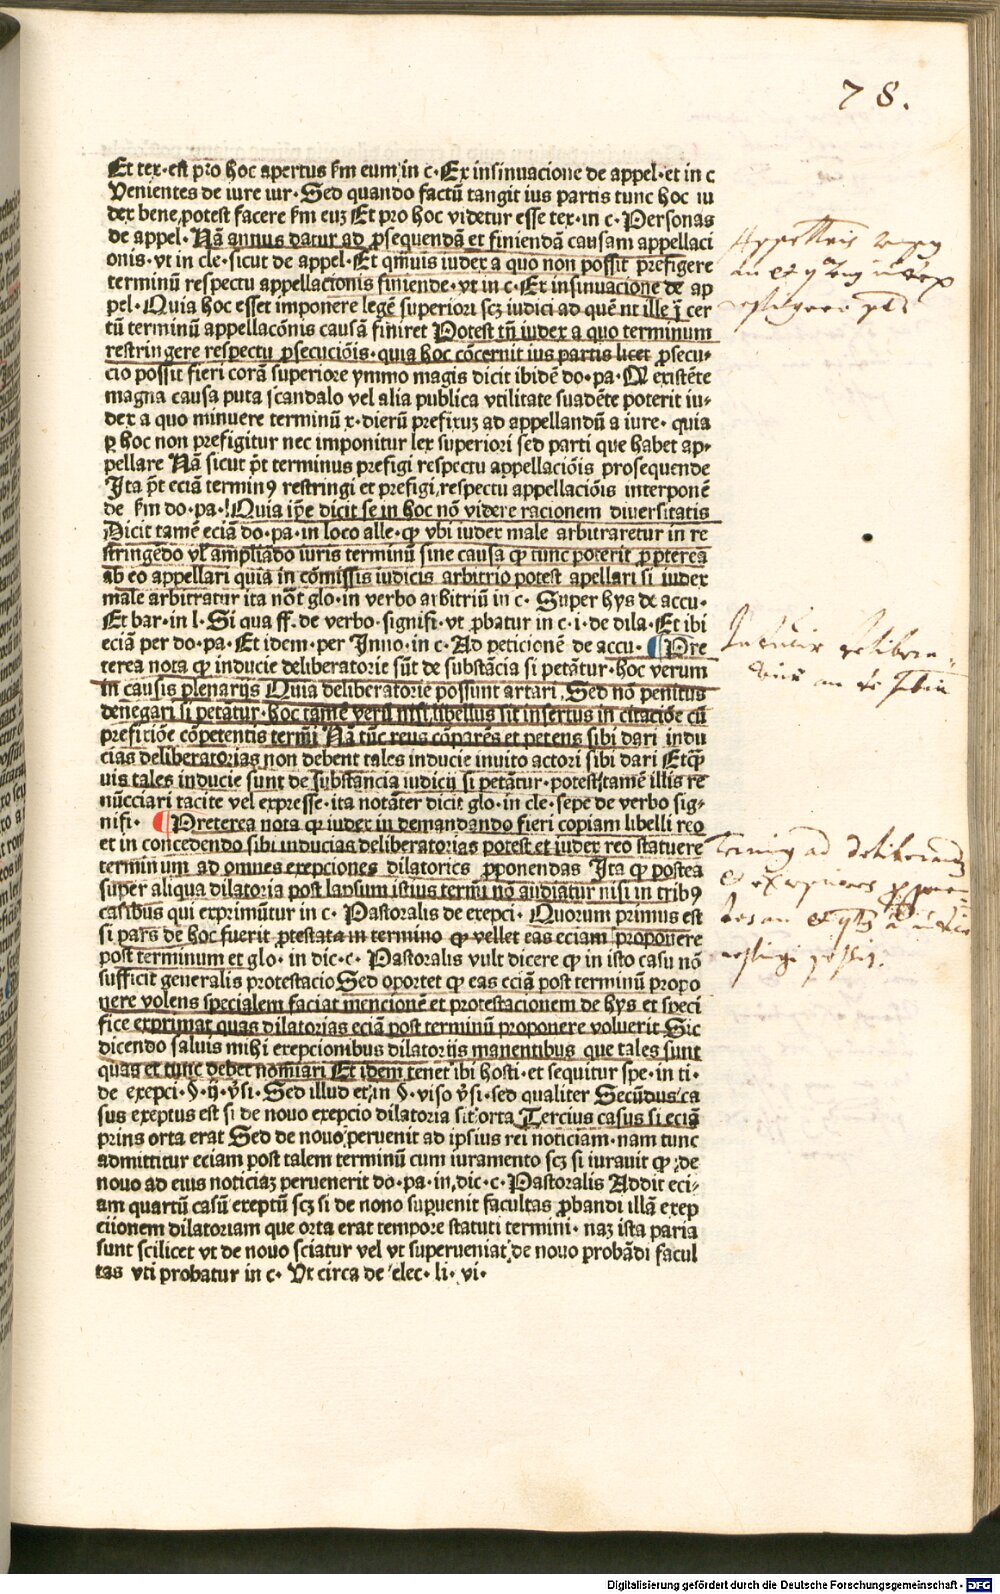 78.
Et tex· est pro hoc apertus scd̄m eum in c· Ex insinuacione de appel· et in c
Venientes de iure iur· Sed quando factū tangit ius partis tunc hoc iu
dex bene potest facere scd̄m euꝫ Et pro hoc videtur esse tex· in c· Personas
de appel· Nā annus datur ad ꝓsequendā et finiendā causam appellaci
onis· vt in cle· sicut de appel· Et qm̄uis iudex a quo non possit prefigere
terminū respectu appellacionis finiende· vt in c· Ex insinuacione de ap
pel· Quia hoc esset imponere legē superiori scꝫ iudici ad quē nt ille ī cer
tū terminū appellacōnis causā finiret Potest tn̄ iudex a quo terminum
restringere respectu ꝓsecuciōis· quia hoc cōcernit ius partis licet ꝓsecu⸗
cio possit fieri corā superiore ymmo magis dicit ibidē do· pa· Qꝫ existēte
magna causa puta scandalo vel alia publica vtilitate suadēte poterit iu⸗
dex a quo minuere terminū x· dierū prefixuꝫ ad appellandū a iure· quia
ꝑ hoc non prefigitur nec imponitur lex superiori sed parti que habet ap⸗
pellare Nā sicut p̄t terminus prefigi respectu appellaciōis prosequende
Ita p̄t eciā terminꝰ restringi et prefigi respectu appellaciōis interponē
de scd̄m do· pa· Quia ip̄e dicit se in hoc nō videre racionem diuersitatis
Dicit tamē eciā do· pa· in loco alle· ꝙ vbi iudex male arbitraretur in re
stringēdo vl̓ ampliādo iuris terminū sine causa ꝙ tunc poterit ꝓpterea
ab eo appellari quia in cōmissis iudicis arbitrio potest apellari si iudex
male arbitratur ita nōt glo· in verbo arbitriū in c· Super hys de accu·
Et bar· in l· Si qua ff· de verbo· signifi· vt ꝓbatur in c· i· de dila· Et ibi
eciā per do· pa· Et idem· per Inno· in c· Ad peticionē de accu· Pre
terea nota ꝙ inducie deliberatorie sūt de substācia si petātur· hoc verum
in causis plenarijs Quia deliberatorie possunt artari· Sed nō penitus
denegari si petātur· hoc tamē verū nisi libellus sit insertus in citaciōe cū
prefixiōe cōpetentis termi̅ Nā tūc reus cōparēs et petens sibi dari indu
cias deliberatorias non debent tales inducie inuito actori sibi dari Etcꝙ̄
uis tales inducie sunt de substancia iudicij si petātur· potest tamē illis re
nūcciari tacite vel expresse· ita notāter dicit glo· in cle· sepe de verbo sig⸗
nifi· Preterea nota ꝙ iudex in demandando fieri copiam libelli reo
et in concedendo sibi inducias deliberatorias potest et iudex reo statuere
terminum ad omnes exepciones dilatorics ꝓponendas Ita ꝙ postea
super aliqua dilatoria post lapsum istius termī nō audiatur nisi in tribꝰ
casibus qui exprimūtur in c· Pastoralis de exepci· Quorum primus est
si pars de hoc fuerit ꝓtestata in termino ꝙ vellet eas eciam proponere
post terminum et glo· in dic· c· Pastoralis vult dicere ꝙ in isto casu nō
sufficit generalis protestacio Sed oportet ꝙ eas eciā post terminū propo
nere volens specialem faciat mencionē et protestacionem de hys et speci
fice exprimat quas dilatorias eciā post terminū proponere voluerit Sic
dicendo saluis mihi exepcionibus dilatorijs manentibus que tales sunt
quas et tunc debet nomīari Et idem tenet ibi hosti· et sequitur spe· in ti·
de exepci· §· ij· ꝟsi· Sed illud et in §· viso ꝟsi· sed qualiter Secūdus ca
sus exeptus est si de nouo exepcio dilatoria sit orta Tercius casus si eciā
prins orta erat Sed de nouo peruenit ad ipsius rei noticiam· nam tunc
admittitur eciam post talem terminū cum iuramento scꝫ si iurauit ꝙ de
nouo ad eius noticiaꝫ peruenerit do· pa· in dic· c· Pastoralis Addit eci⸗
am quartū casū exeptū scꝫ si de nono supuenit facultas ꝓbandi illā exep
ciionem dilatoriam que orta erat tempore statuti termini· naꝫ ista paria
sunt scilicet vt de nouo sciatur vel vt superueniat de nouo probādi facul
tas vti probatur in c· Vt circa de elec· li· vi·
Digitalisierung gefördert durch die Deutsche Forschungsgemeinschaft - DFG